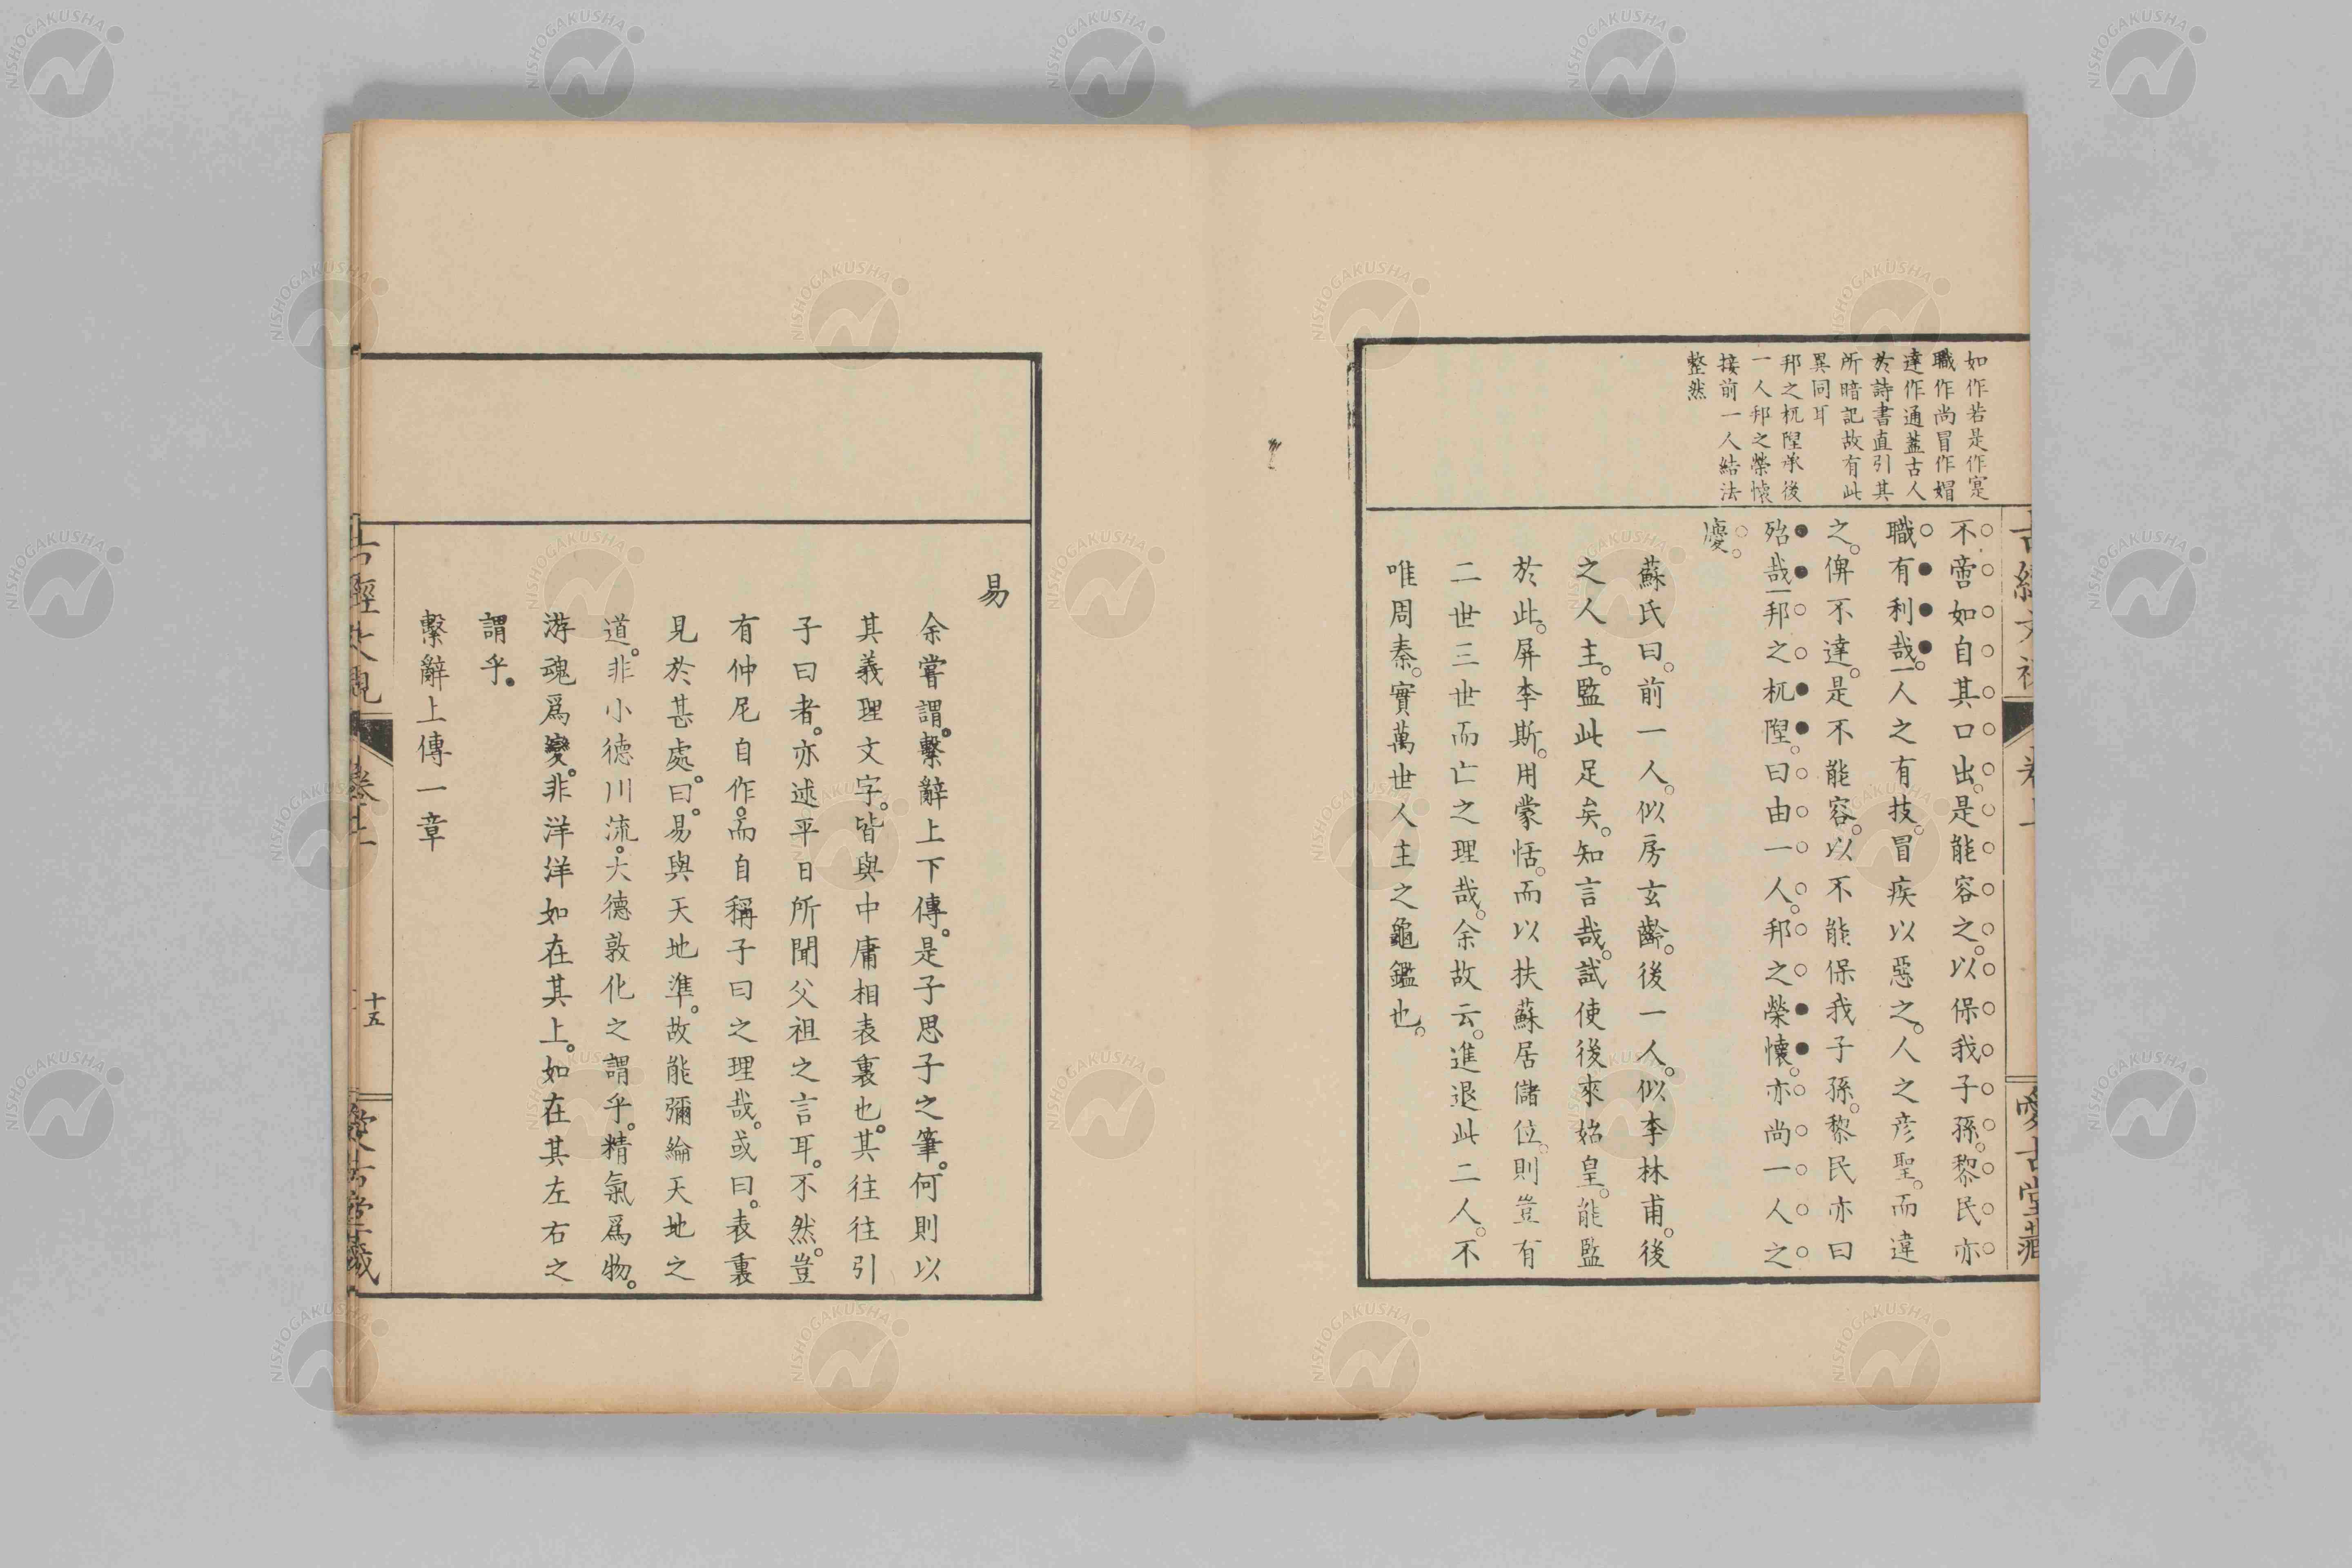 如作若是作寔
職作尚冒作媢
達作通蓋古人
於詩書直引其
所暗記故有此
異同耳
邦之杌隉承後
一人邦之榮懷
接前一人結法
整然
不啻如自其口出。是能容之。以保我子孫。黎民亦
職有利哉。一人之有技。冒疾以惡之。人之彦聖。而違
之。俾不達。是不能容。以不能保我子孫。黎民亦曰
殆哉。一邦之杌隉。曰由一人。邦之榮懷。亦尚一人之
慶。
蘇氏曰。前一人。似房玄齡。後一人。似李林甫。後
之人主。監此足矣。知言哉。試使後來始皇。能監
於此。屏李斯。用蒙恬。而以扶蘇居儲位。則豈有
二世三世而亡之理哉。余故云。進退此二人。不
唯周秦。實萬世人主之龜鑑也。
易
余嘗謂。繫辭上下傳。是子思子之筆。何則以
其義理文字。皆與中庸相表裏也。其往往引
子曰者。亦述平日所聞父祖之言耳。不然。豈
有仲尼自作。而自稱子曰之理哉。或曰。表裏
見於甚處。曰。易與天地準。故能彌綸天地之
道。非小德川流。大德敦化之謂乎。精氣爲物。
游魂爲變。非洋洋如在其上。如在其左右之
謂乎。
繫辭上傳一章
卷上
十五
愛古堂藏
NISHOGAKUSHA